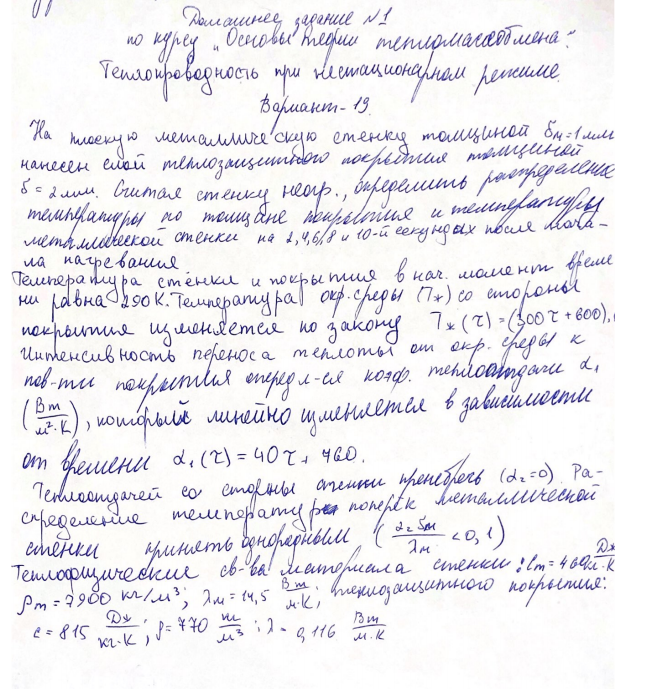 Домашнее задание №1
по курсу „Основы теории тепломассообмена".
Теплопроводность при нестационарном режиме.
Вариант-19.
На плоскую металлическую стенку толщиной δм=1мм
нанесен слой теплозащитного покрытия толщиной
δ=2мм. Считая стенку неогр., определить распределение
температуры по толщине покрытия и температуры
металлической стенки на 2,4,6,8 и 10-й секундах после нача-
ла нагревания
Температура стенки и покрытия в нач. момент време
ни равна 290К. Температура окр. среды (T*) со стороны
покрытия изменяется по закону T*(τ)=(300τ+600),
Интенсивность переноса теплоты от окр. среды к
пов-ти покрытия опред-ся коэф. теплоотдачи α₁
(Вт/м²·К), который линейно изменяется в зависимости
от времени α₁(τ)=40τ+760.
Теплоотдачей со стороны стенки пренебречь (α₂=0). Ра-
спределение температур поперек металлической
стенки принять однородным (α₂δм/λм<0,1)
Теплофизические св-ва материала стенки: Cм=460 Дж/кг·К
ρм=7900 кг/м³; λм=14,5 Вт/м·К; теплозащитного покрытия:
c=815 Дж/кг·К; ρ=770 кг/м³; λ=0,116 Вт/м·К